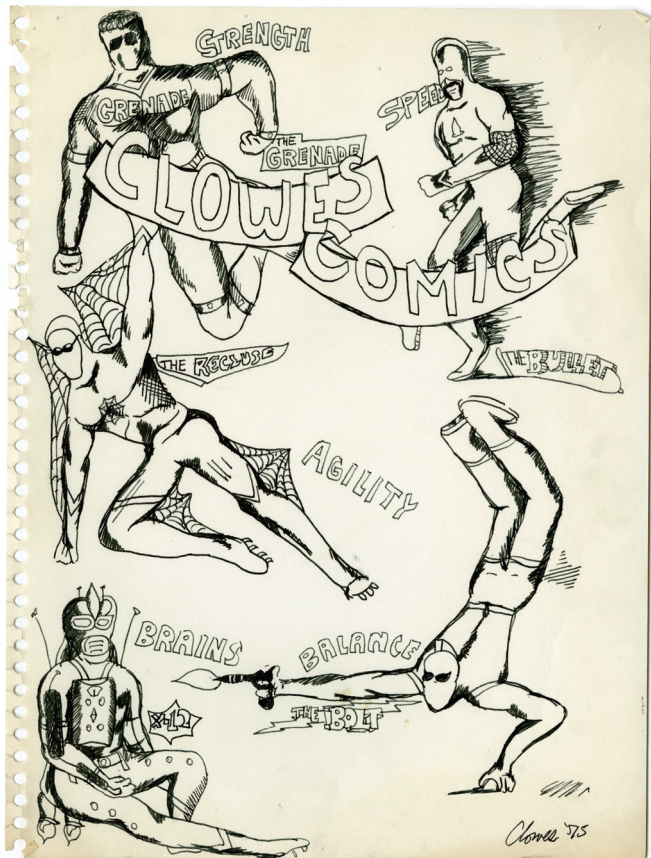 STRENGTH
GRENADE
SPEED
THE
GRENADE
CLOWES
COMICS
THE RECLUSE
THE BULLET
AGILITY
BRAINS
BALANCE
X-12
THE BOLT
Clowes '75